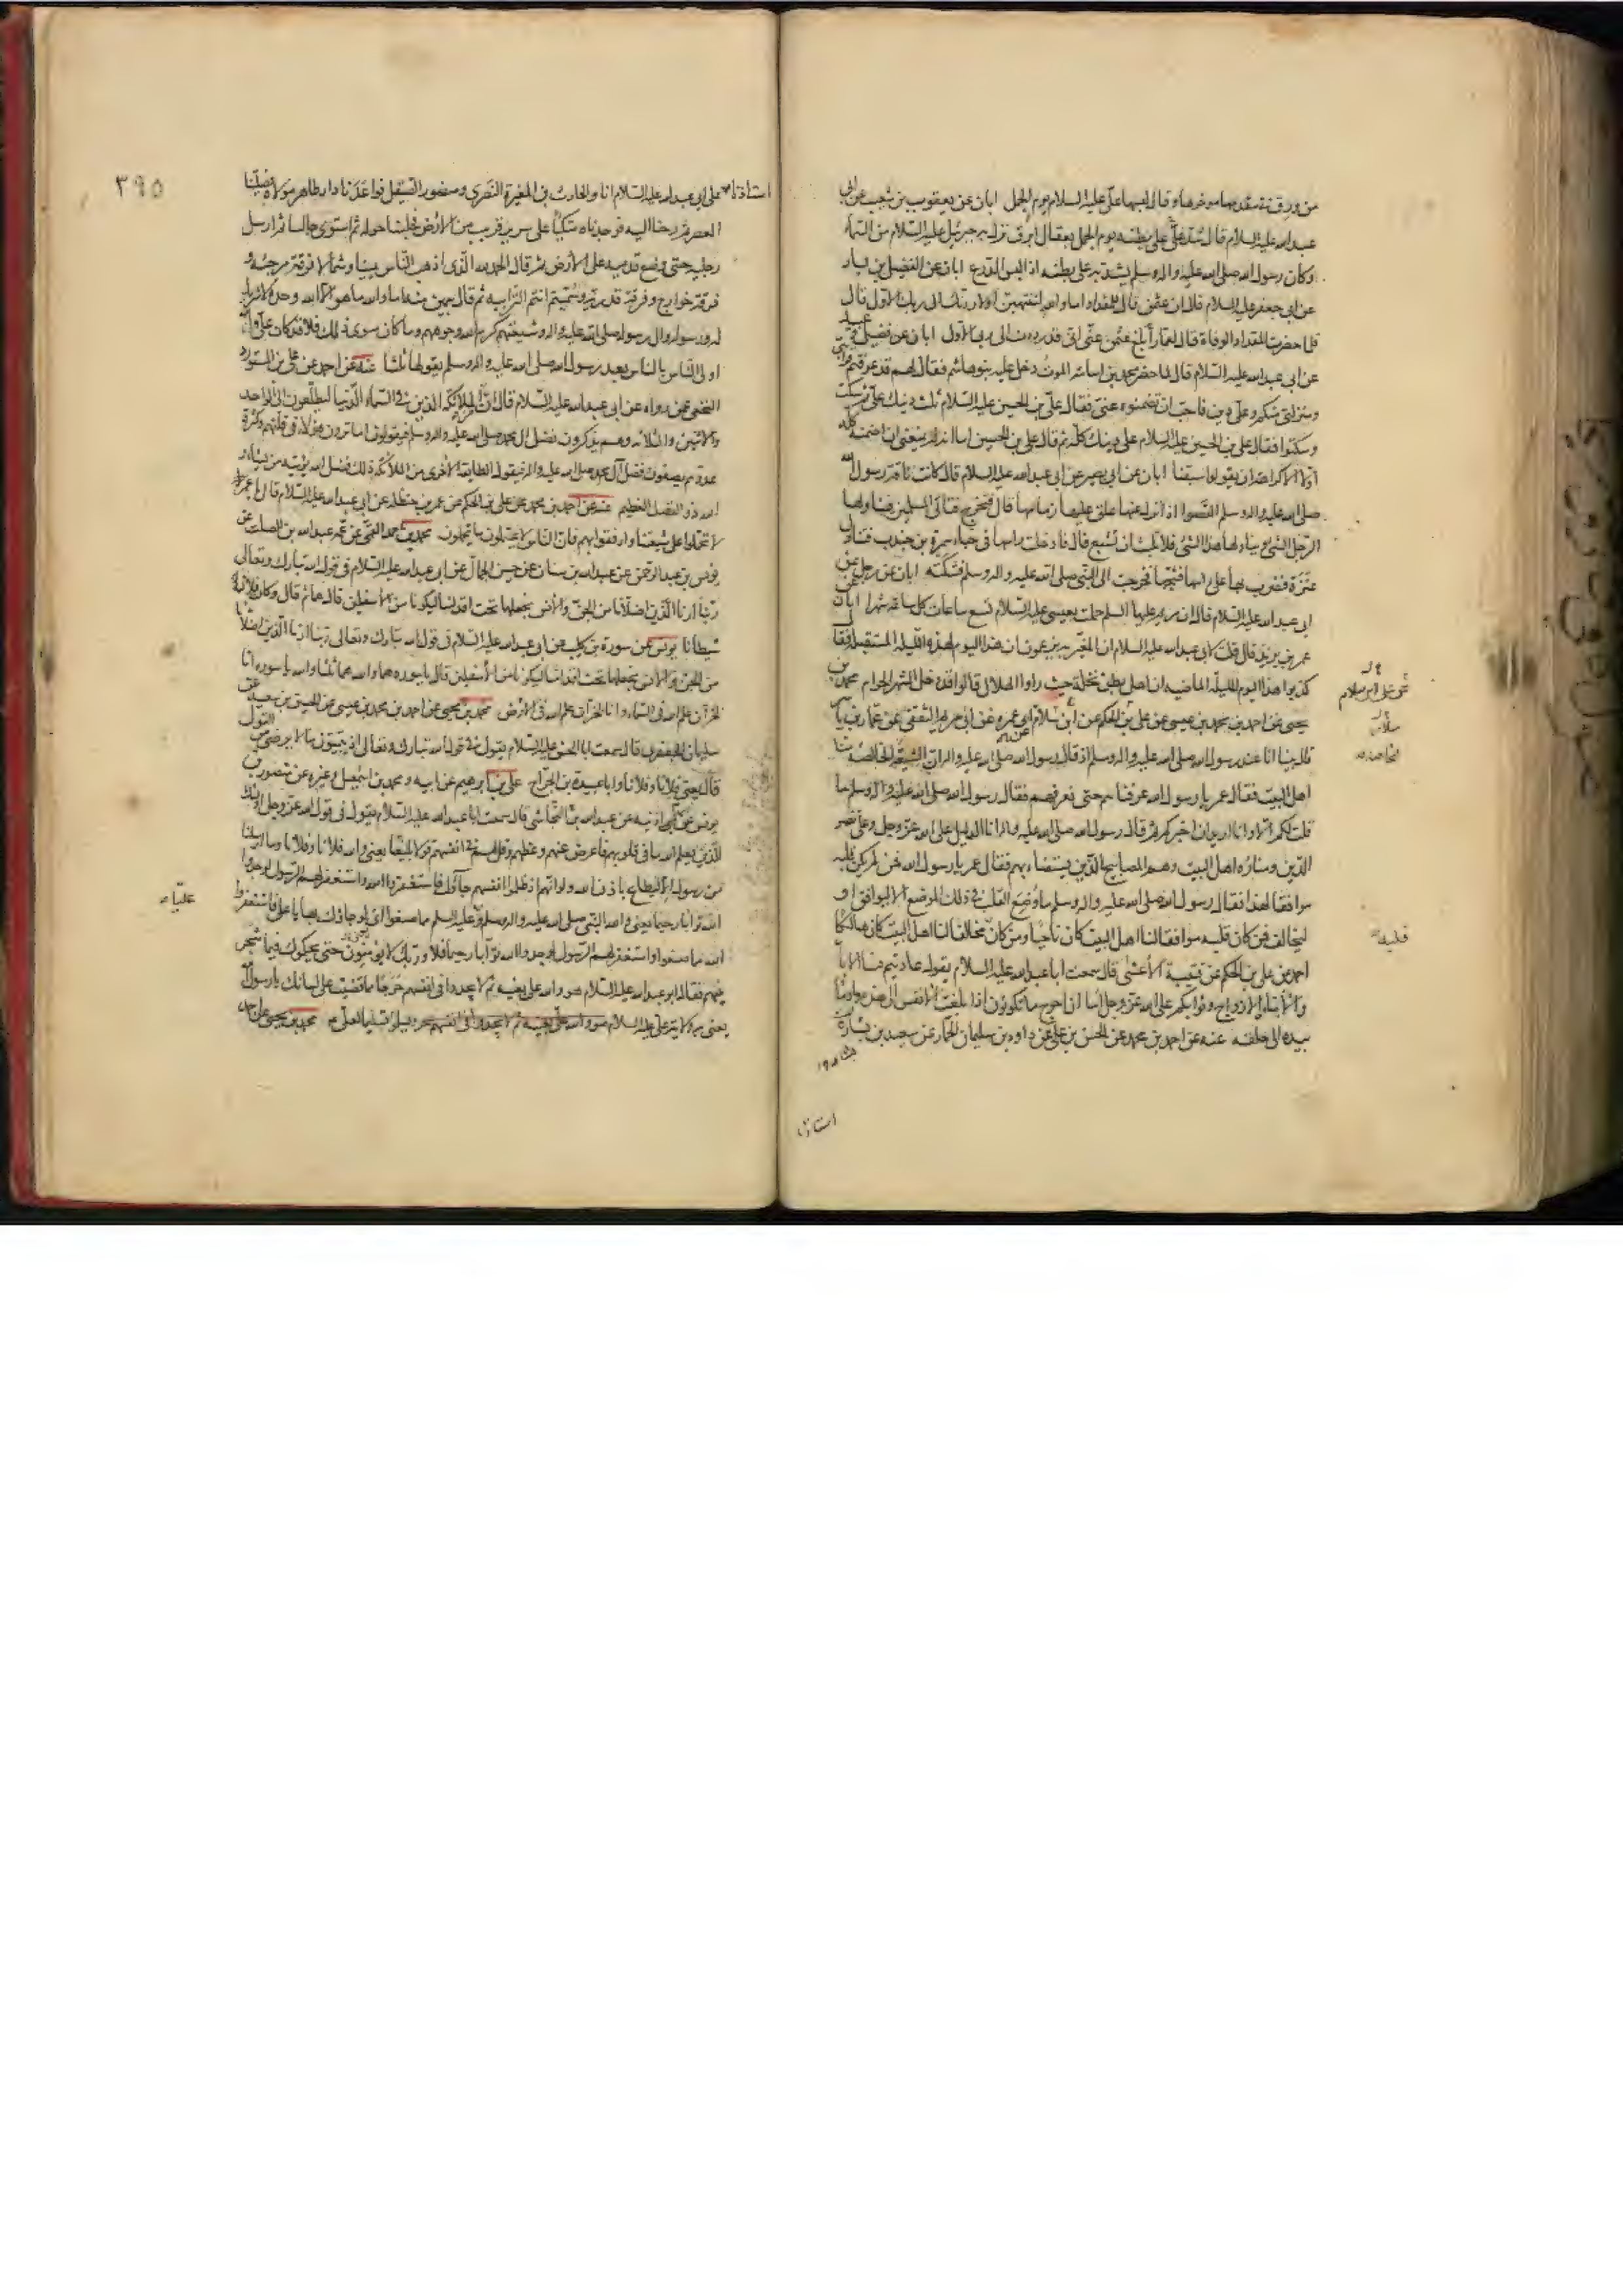 من ورق من مقدمها ومؤخرها وقال لبسها علي عليه السلام يوم الجمل ابان عن يعقوب بن شعيب عن ابي
عبد الله عليه السلام قال شد علي على بطنه يوم الجمل بعقال ابرق نزل به جبرئيل عليه السلام من السماء
وكان رسول الله صلى الله عليه واله وسلم يشد به على بطنه اذا لبس الدرع ابان عن الفضيل بن يسار
عن ابي جعفر عليه السلام قال ان عثمن قال للمقداد اما والله لتنتهين او لاردنك الى ربك الاول قال
فلما حضرت المقداد الوفاة قال لعمار ابلغ عثمن عني اني قد رددت الى ربي الاول ابان عن فضيل وعبيد
عن ابي عبد الله عليه السلام قال لما حضر محمد بن اسامة الموت دخل عليه بنو هاشم فقال لهم قد عرفتم قرابتي
ومنزلتي منكم وعلي دين فاحب ان تضمنوه عني فقال علي بن الحسين عليه السلام ثلث دينك علي ثم سكت
وسكتوا فقال علي بن الحسين عليه السلام علي دينك كله ثم قال علي بن الحسين اما انه لم يمنعني ان اضمنه
اولا الا كراهة ان يقولوا سبقنا ابان عن ابي بصير عن ابي عبد الله عليه السلام قال كانت ناقة رسول الله
صلى الله عليه واله وسلم القصوا اذا نزل عنها علق عليها زمامها قال فتخرج فتأتي المسلمين فيناولها
الرجل الشئ ويناولها هذا الشئ فلا تلبث ان تشبع قال فادخلت راسها في خباء سمرة بن جندب فتناول
عنزة فضرب بها على راسها فشجها فخرجت الى النبي صلى الله عليه واله وسلم فشكته ابان عن رجل عن
ابي عبد الله عليه السلام قال ان مريم عليها السلم حملت بعيسى عليه السلام تسع ساعات كل ساعة شهرا ابان عن
عمر بن يزيد قال قلت لابي عبد الله عليه السلام ان المغيرية يزعمون ان هذا اليوم لهذه الليلة المستقبلة فقال
كذبوا هذا اليوم لليلة الماضية ان اهل بطن نخلة حيث راوا الهلال قالوا قد دخل الشهر الحرام محمد بن
يحيى عن احمد بن محمد بن عيسى عن علي بن الحكم عن ابن سلام ابي عمرة عن ابي مريم الثقفي عن عمار بن ياسر
قال بينا انا عند رسول الله صلى الله عليه واله وسلم اذ قال رسول الله صلى الله عليه واله ان الشيعة الخاصة منا
اهل البيت فقال عمر يا رسول الله عرفناهم حتى نعرفهم فقال رسول الله صلى الله عليه واله وسلم ما
قلت لكم الا وانا اريد ان اخبركم ثم قال رسول الله صلى الله عليه واله انا الدليل على الله عز وجل وعلي نصر
الدين ومناره اهل البيت وهم المصابيح الذين يستضاء بهم فقال عمر يا رسول الله فمن لم يكن قلبه
موافقا لهذا فقال رسول الله صلى الله عليه واله وسلم ما وضع القلب في ذلك الموضع الا ليوافق او
ليخالف فمن كان قلبه موافقا لنا اهل البيت كان ناجيا ومن كان مخالفا لنا اهل البيت كان هالكا
احمد عن علي بن الحكم عن قتيبة الاعشى قال سمعت ابا عبد الله عليه السلام يقول عاديتم فينا الاباء
والابناء والازواج وثوابكم على الله عز وجل اما ان احوج ما تكونون اذا بلغت الانفس الى هذه واومأ
بيده الى حلقه عنه عن احمد بن محمد عن الحسن بن علي عن داود بن سليمان الحمار عن سعيد بن يسار قال
استاذنا
٣٩٥
استاذنا على ابي عبد الله عليه السلام انا والحارث بن المغيرة النصري ومنصور الصيقل فواعدنا دار طاهر مولاه فصلينا
العصر ثم رحنا اليه فوجدناه متكئا على سرير قريب من الارض فجلسنا حوله ثم استوى جالسا ثم ارسل
رجليه حتى وضع قدميه على الارض ثم قال الحمد لله الذي اذهب الناس يمينا وشمالا فرقة مرجئة و
فرقة خوارج وفرقة قدرية وسميتم انتم الترابية ثم قال بيمين منه اما والله ما هو الا الله وحده لا شريك
له ورسوله وال رسوله صلى الله عليه واله وشيعتهم كرم الله وجوههم وما كان سوى ذلك فلا فقد كان علي والله
اولى الناس بالناس بعد رسول الله صلى الله عليه واله وسلم يقولها ثلثا عنه عن احمد عن علي بن المستورد
النخعي عمن رواه عن ابي عبد الله عليه السلام قال ان من الملائكة الذين في السماء الدنيا ليطلعون الى الواحد
والاثنين والثلاثة وهم يذكرون فضل ال محمد صلى الله عليه واله وسلم فيقولون اما ترون هؤلاء في قلتهم وكثرة
عدوهم يصفون فضل آل محمد صلى الله عليه واله فيقول الطائفة الاخرى من الملائكة ذلك فضل الله يؤتيه من يشاء و
الله ذو الفضل العظيم عنه عن احمد بن محمد عن علي بن الحكم عن عمر بن حنظلة عن ابي عبد الله عليه السلام قال يا عمر
لا تحملوا على شيعتنا وارفقوا بهم فان الناس لا يحتملون ما تحملون محمد بن احمد القمي عن عمه عبد الله بن الصلت عن
يونس بن عبد الرحمن عن عبد الله بن سنان عن حسين الجمال عن ابي عبد الله عليه السلام في قول الله تبارك وتعالى
ربنا ارنا الذين اضلانا من الجن والانس نجعلهما تحت اقدامنا ليكونا من الاسفلين قال هما ثم قال وكان فلان
شيطانا يونس عن سورة بن كليب عن ابي عبد الله عليه السلام في قول الله تبارك وتعالى ربنا ارنا الذين اضلانا
من الجن والانس نجعلهما تحت اقدامنا ليكونا من الاسفلين قال يا سورة هما والله هما ثلثا والله يا سورة انا
لخزان علم الله في السماء وانا لخزان علم الله في الارض محمد بن يحيى عن احمد بن محمد بن عيسى عن الحسين بن سعيد عن
سليمان الجعفري قال سمعت ابا الحسن عليه السلام يقول في قول الله تبارك وتعالى اذ يبيتون ما لا يرضى من القول
قال يعني فلانا وفلانا وابا عبيدة بن الجراح علي بن ابرهيم عن ابيه ومحمد بن اسمعيل وغيره عن منصور بن
يونس عن ابن اذينه عن عبد الله بن النجاشي قال سمعت ابا عبد الله عليه السلام يقول في قول الله عز وجل اولئك
الذين يعلم الله ما في قلوبهم فاعرض عنهم وعظهم وقل لهم في انفسهم قولا بليغا يعني والله فلانا وفلانا وما ارسلنا
من رسول الا ليطاع باذن الله ولو انهم اذ ظلموا انفسهم جاؤك فاستغفروا الله واستغفر لهم الرسول لوجدوا
الله توابا رحيما يعني والله النبي صلى الله عليه واله وسلم وعليا عليه السلم مما صنعوا اي لو جاؤك بها يا علي فاستغفروا
الله مما صنعوا واستغفر لهم الرسول لوجدوا الله توابا رحيما فلا وربك لا يؤمنون حتى يحكموك فيما شجر
بينهم فقال ابو عبد الله عليه السلام هو والله علي بعينه ثم لا يجدوا في انفسهم حرجا مما قضيت على لسانك يا رسول الله
يعني به ولاية علي عليه السلام ويسلموا تسليما لعلي محمد بن يحيى عن احمد